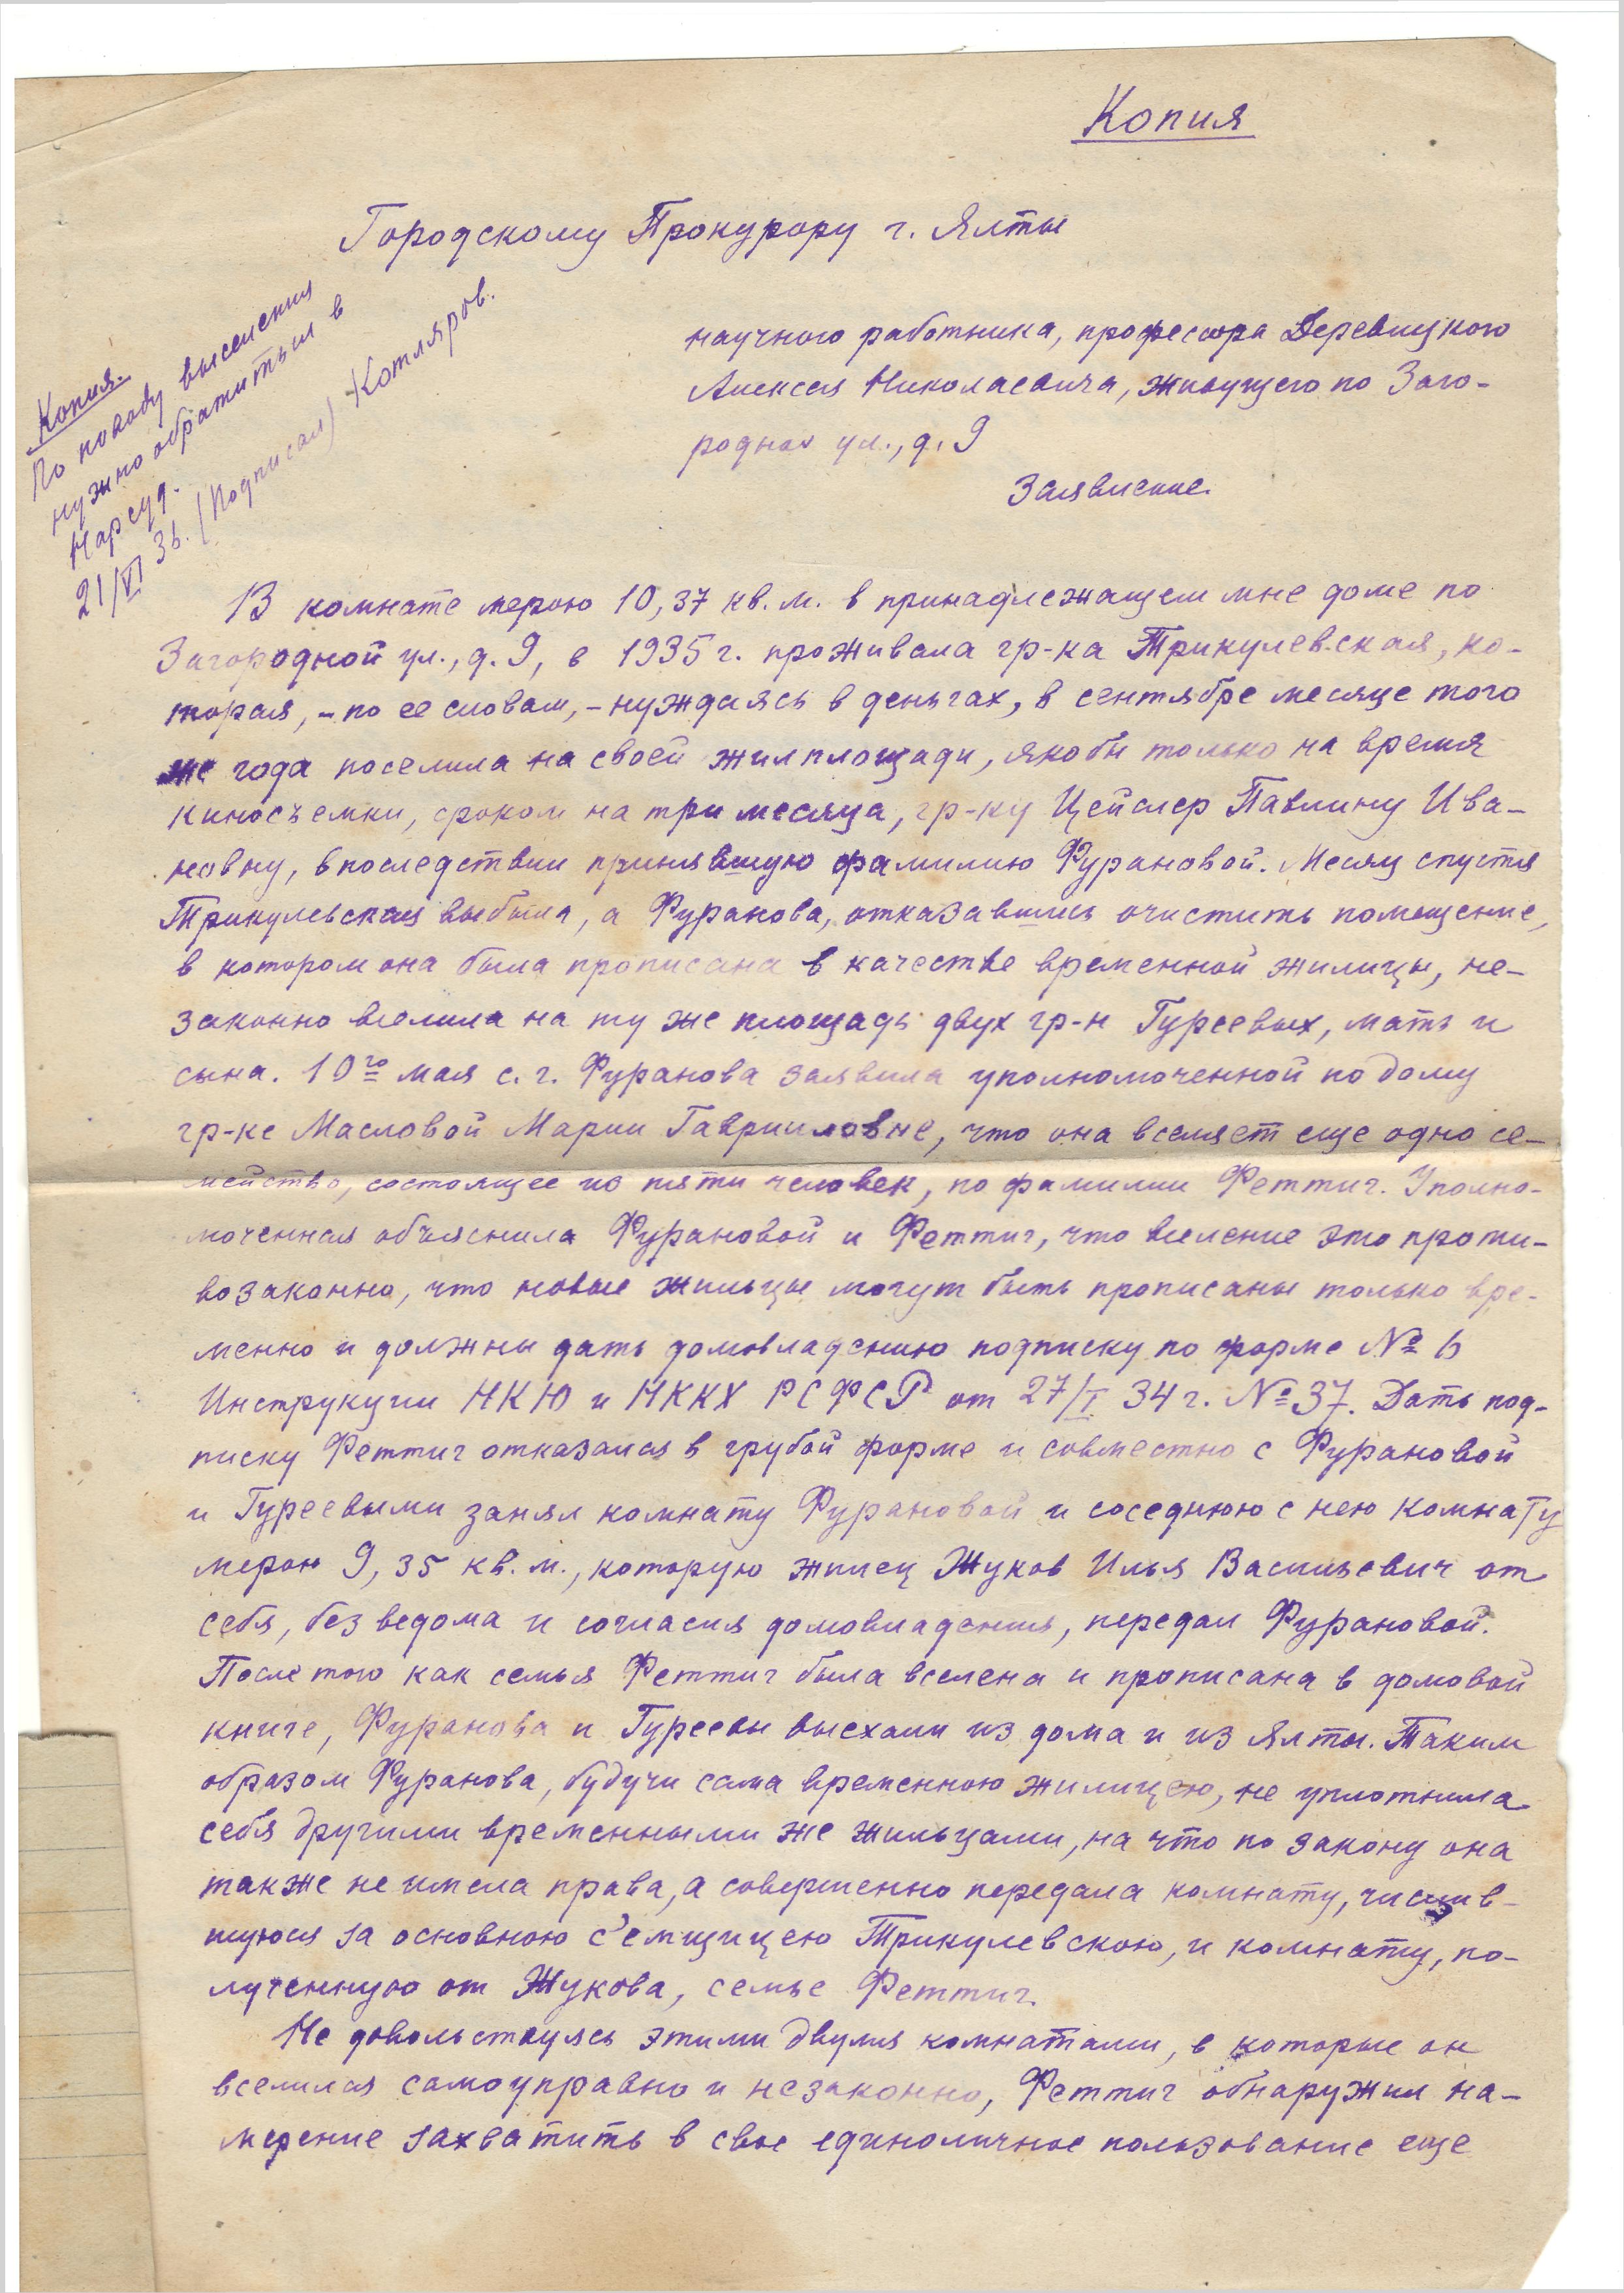 Копия
Городскому Прокурору г. Ялты
научного работника, профессора Деревицкого
Алексея Николаевича, живущего по Заго-
родной ул., д. 9
Заявление.
Копия.
По поводу выселения
нужно обратиться в
Нарсуд.
21/VI 36. (Подписал) Котляров.
В комнате мерою 10,37 кв. м. в принадлежащем мне доме по
Загородной ул., д. 9, в 1935 г. проживала гр-ка Трикулевская, ко-
торая, - по ее словам, - нуждаясь в деньгах, в сентябре месяце того
же года поселила на своей жилплощади, якобы только на время
киносъемки, сроком на три месяца, гр-ку Цейслер Павлину Ива-
новну, впоследствии принявшую фамилию Фурановой. Месяц спустя
Трикулевская выбыла, а Фуранова, отказавшись очистить помещение,
в котором она была прописана в качестве временной жилицы, не-
законно вселила на ту же площадь двух гр-н Гуреевых, мать и
сына. 10го мая с. г. Фуранова заявила уполномоченной по дому
гр-ке Масловой Марии Гаврииловне, что она вселяет еще одно се-
мейство, состоящее из пяти человек, по фамилии Феттиг. Уполно-
моченная объяснила Фурановой и Феттиг, что вселение это проти-
возаконно, что новые жильцы могут быть прописаны только вре-
менно и должны дать домовладению подписку по форме № 6
Инструкции НКЮ и НККХ РСФСР от 27/I 34 г. № 37. Дать под-
писку Феттиг отказался в грубой форме и совместно с Фурановой
и Гуреевыми занял комнату Фурановой и соседнюю с нею комнату
мерою 9,35 кв. м., которую жилец Жуков Илья Васильевич от
себя, без ведома и согласия домовладения, передал Фурановой.
После того как семья Феттиг была вселена и прописана в домовой
книге, Фуранова и Гуреевы выехали из дома и из Ялты. Таким
образом Фуранова, будучи сама временною жилицею, не уплотнила
себя другими временными же жильцами, на что по закону она
также не имела права, а совершенно передала комнату, числив-
шуюся за основною с'емщицею Трикулевскою, и комнату, по-
лученную от Жукова, семье Феттиг.
Не довольствуясь этими двумя комнатами, в которые он
вселился самоуправно и незаконно, Феттиг обнаружил на-
мерение захватить в свое единоличное пользование еще